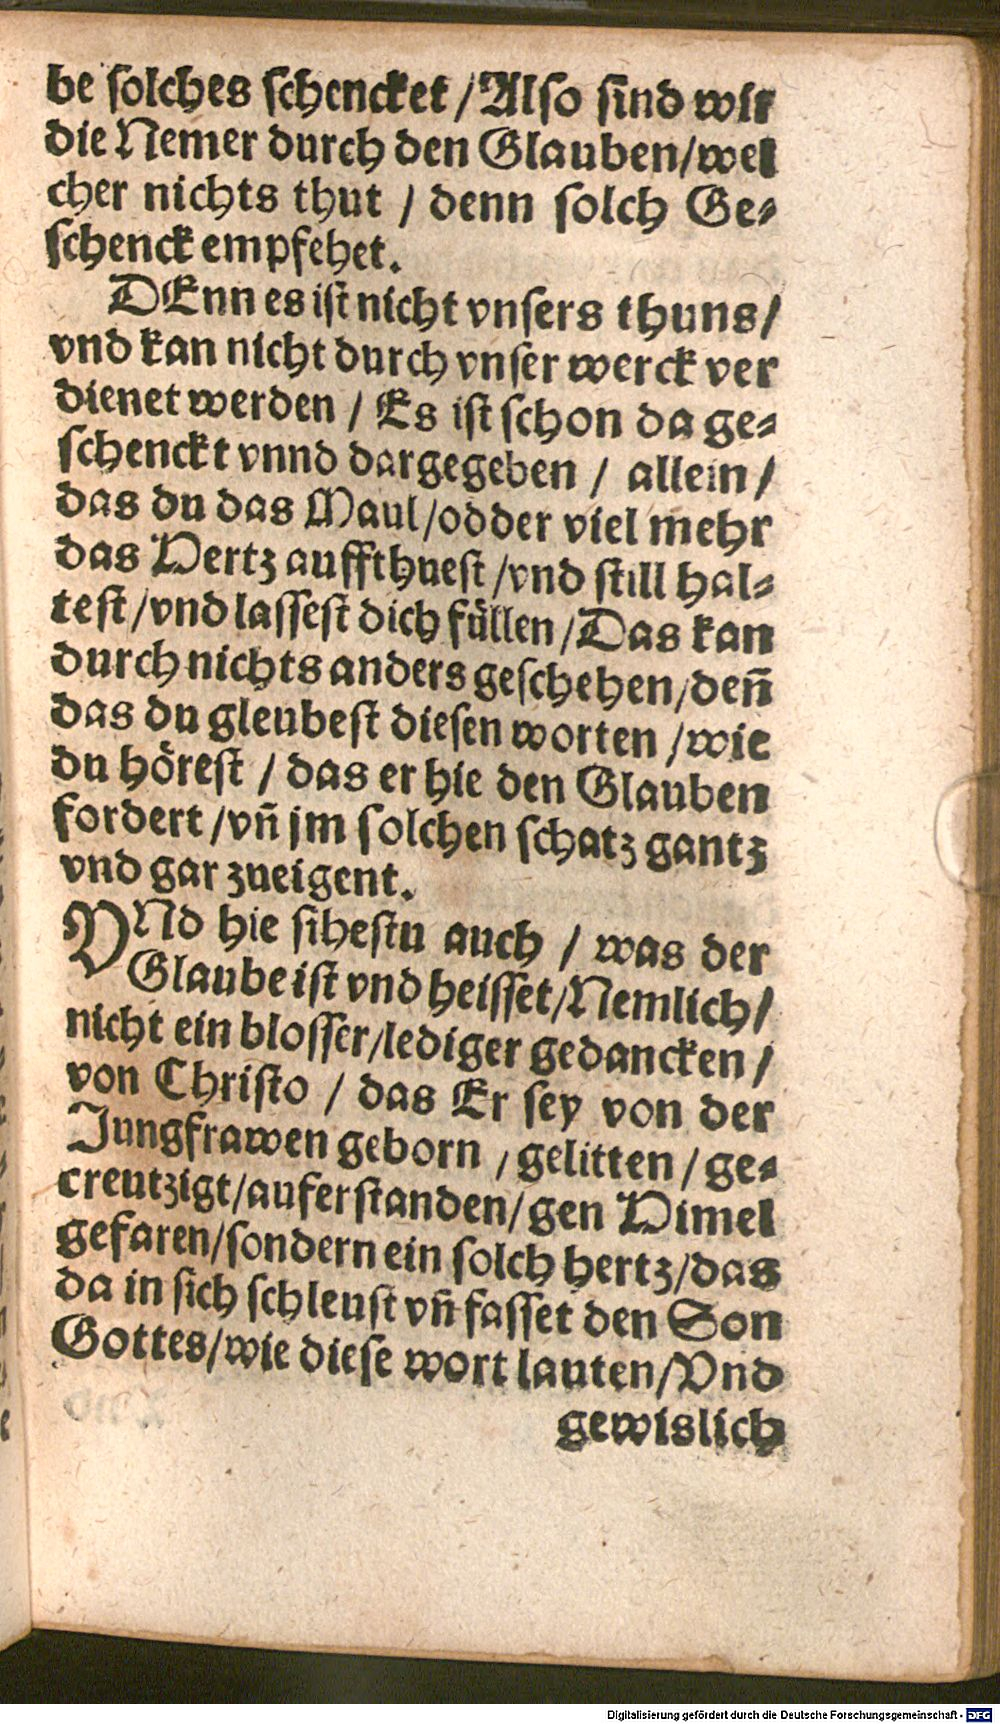 be ſolches ſchencket / Alſo ſind wir
die Nemer durch den Glauben / wel
cher nichts thut / denn ſolch Ge⸗
ſchenck empfehet.
DEnn es iſt nicht vnſers thuns /
vnd kan nicht durch vnſer werck ver
dienet werden / Es iſt ſchon da ge⸗
ſchenckt vnnd dargegeben / allein /
das du das Maul / odder viel mehr
das Hertz auffthueſt / vnd ſtill hal⸗
teſt / vnd laſſeſt dich füllen / Das kan
durch nichts anders geſchehen / deñ
das du gleubeſt dieſen worten / wie
du höreſt / das er hie den Glauben
fordert / vñ jm ſolchen ſchatz gantz
vnd gar zueigent.
VNd hie ſiheſtu auch / was der
Glaube iſt vnd heiſſet / Nemlich /
nicht ein bloſſer / lediger gedancken /
von Chriſto / das Er ſey von der
Jungfrawen geborn / gelitten / ge⸗
creutzigt / auferſtanden / gen Himel
gefaren / ſondern ein ſolch hertz / das
da in ſich ſchleuſt vñ faſſet den Son
Gottes / wie dieſe wort lauten / Vnd
gewislich
Digitalisierung gefördert durch die Deutsche Forschungsgemeinschaft - DFG